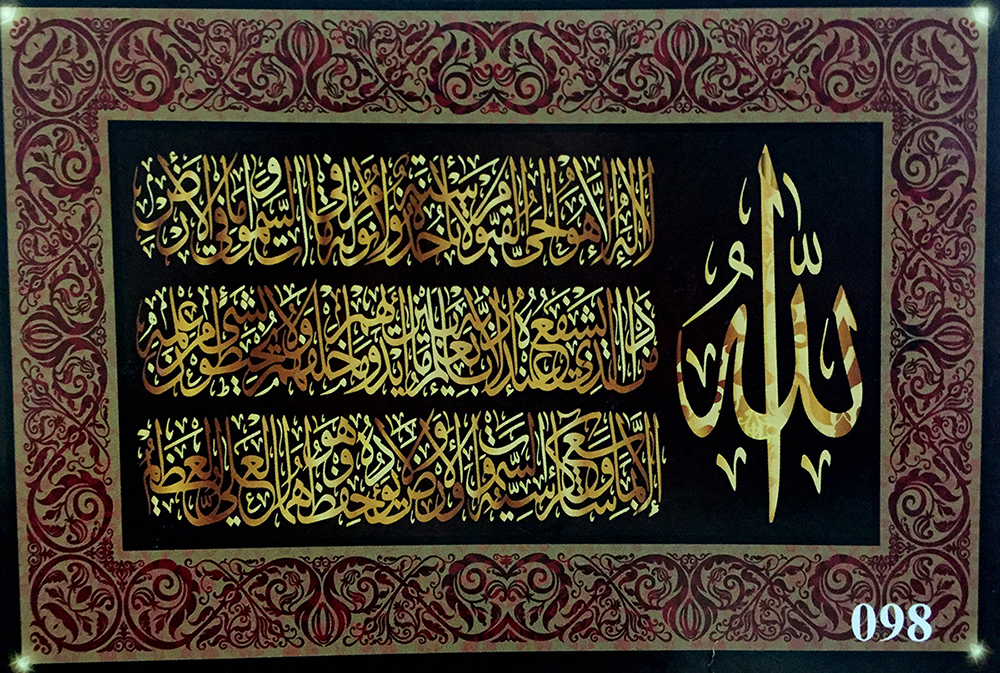 الله
لا إله إلا هو الحي القيوم لا تأخذه سنة ولا نوم له ما في السموات وما في الأرض
من ذا الذي يشفع عنده إلا بإذنه يعلم ما بين أيديهم وما خلفهم ولا يحيطون بشيء من علمه
إلا بما شاء وسع كرسيه السموات والأرض ولا يؤده حفظهما وهو العلي العظيم
098